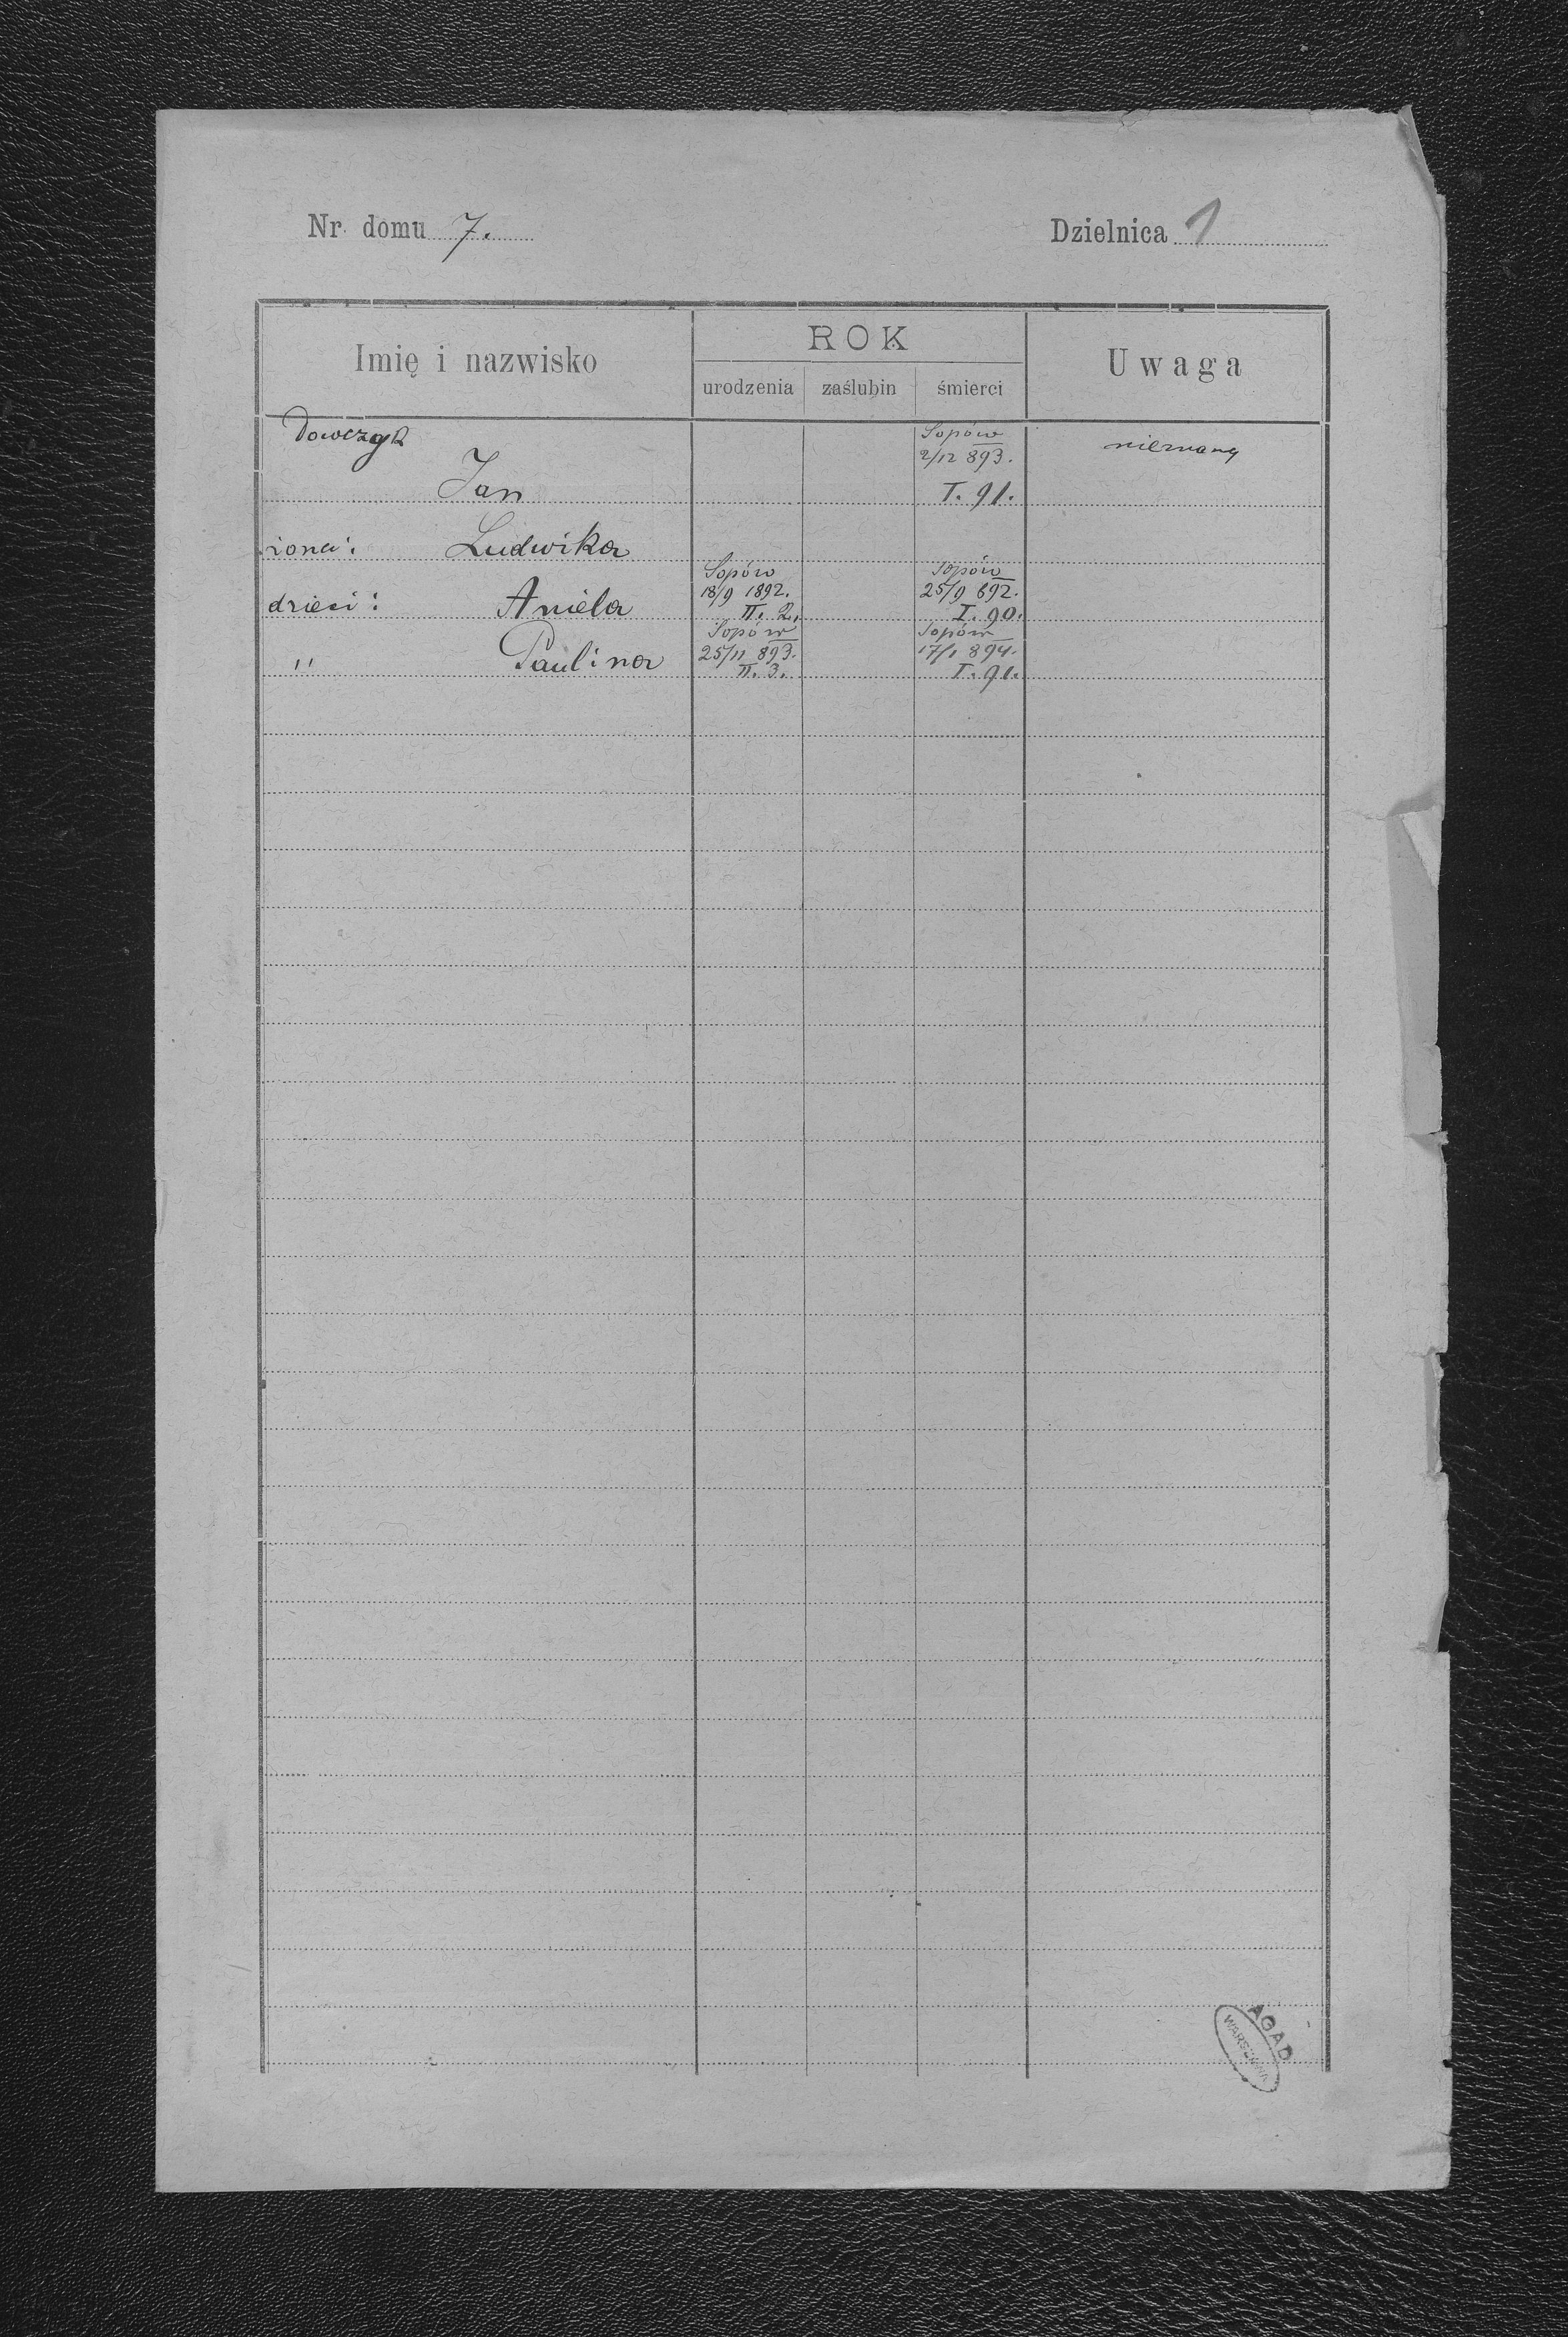 Nr. domu 7.
Dzielnica 1
Imię i nazwisko
ROK
urodzenia zaślubin śmierci
Uwaga
Dowczyk
Sopów
2/12 893.
nieznany
Jan
I. 91.
żona: Ludwika
dzieci: Aniela
Sopów
18/9 1892.
II. 2.
Sopów
25/9 892.
I. 90.
" Paulina
Sopów
25/11 893.
II. 3.
Sopów
17/1 894.
I. 91.
AGAD
WARSZAWA